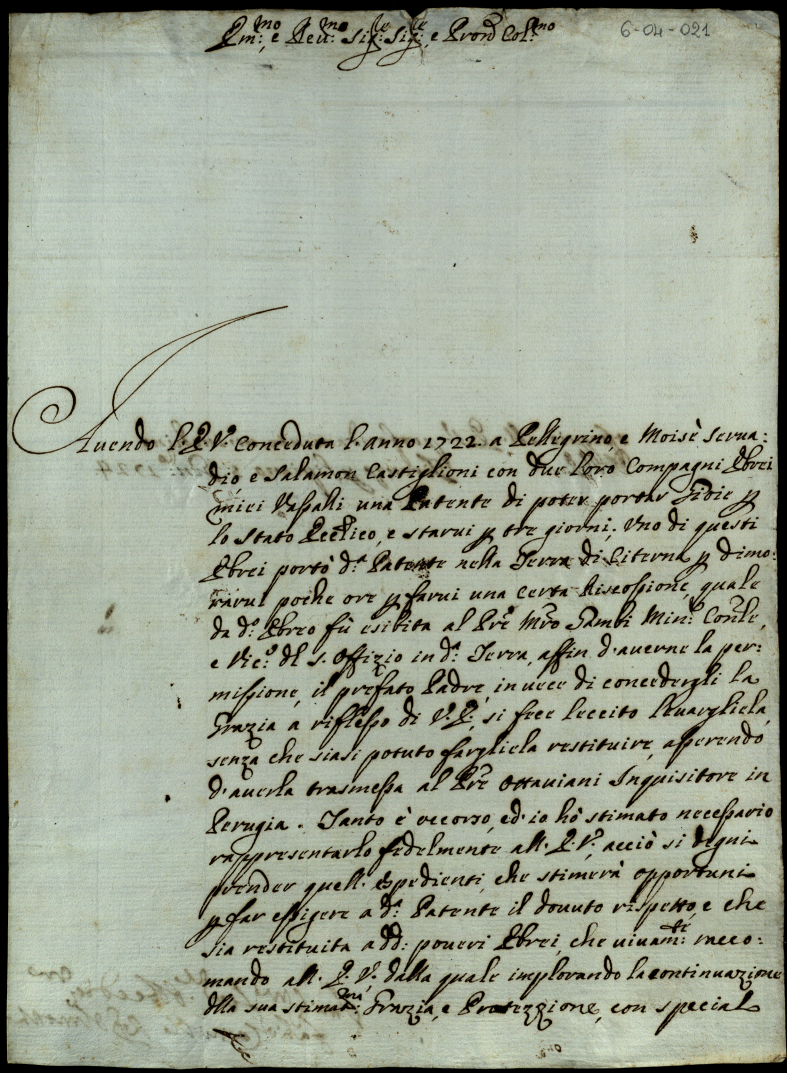 Em:mo e Reu:mo Sig:re Sig:re, e Pron Col:mo
6-04-021
Auendo l'E.V. conceduta l'anno 1722. a Pellegrino, e Moisè Serua:
dio, e Salamon Castiglioni con due loro Compagni Ebrei
miei Vassalli una Patente di poter portar
lo Stato Eccl:ico, e starui p tre giorni; Vno di questi
Ebrei portò d:a Patente nella Terra di Citerna p dimo:
rarui poche ore p farui una certa riscossione, quale
da d:o Ebreo fù esibita al Pre Mro Gambi Min: Con:le,
e Vic:o del S. Offizio in d:a Terra, affin d'auerne la per:
missione, il prefato Padre, in uece di concedergli la
Grazia a riflesso di V.E., si fece leccito leuargliela,
senza che siasi potuto fargliela restituire, asserendo
d'auerla trasmessa al Pre Ottauiani Inquisitore in
Perugia. Tanto è occorso, ed io hò stimato necessario
rappresentarlo fedelmente all'E.V., acciò si degni
prender quell'espedienti, che stimerà opportuni
p far esigere a d:a Patente il douuto rispetto, e che
sia restituita a dd: poueri Ebrei, che viuam:te racco:
mando all'E.V., dalla quale implorando la continuazione
dlla sua stimat:ma Grazia, e Protezzione, con special